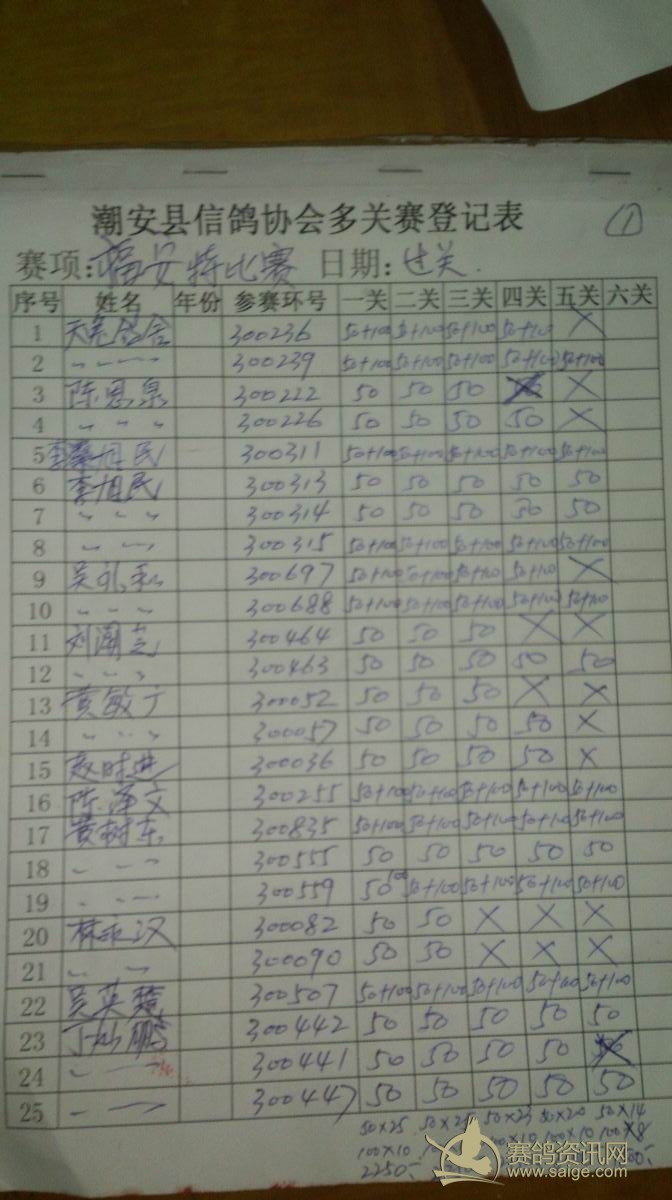 潮安县信鸽协会多关赛登记表 ①
赛项:福安特比赛 日期:过关.
序号 姓名 年份 参赛环号 一关 二关 三关 四关 五关 六关
1 300236 50+100 50+100 50+100 50+100 ×
2 〃 300239 50+100 50+100 50+100 50+100 50+100
3 陈恩泉 300222 50 50 50 ×
4 〃 〃 〃 300226 50 50 50 50 ×
5 李旭民 300311 50+100 50+100 50+100 50+100 50+100
6 李旭民 300313 50 50 50 50 50
7 〃 〃 〃 300314 50 50 50 50 50
8 〃 〃 300315 50+100 50+100 50+100 50+100 50+100
9 吴礼和 300697 50+100 50+100 50+100 50+100 ×
10 〃 〃 300688 50+100 50+100 50+100 50+100 50+100
11 300464 50 50 50 × ×
12 〃 〃 〃 300463 50 50 50 50 50
13 黄敏 300052 50 50 50 × ×
14 〃 〃 〃 300057 50 50 50 50 ×
15 300036 50 50 50 50 ×
16 陈泽文 300255 50+100 50+100 50+100 50+100 50+100
17 黄树东 300835 50+100 50+100 50+100 50+100 50+100
18 〃 〃 〃 300555 50 50 50 50 50
19 〃 〃 300559 50 100 50+100 50+100 50+100 50+100
20 林汉 300082 50 50 × × ×
21 〃 〃 300090 50 50 × × ×
22 吴英 300507 50+100 50+100 50+100 50+100 50+100
23 鹏 300442 50 50 50 50 50
24 〃 〃 300441 50 50 50 50
25 〃 〃 300447 50 50 50 50 50
50×25 50×25 50×23 50×20 50×14
100×10 100×10 100×10 100×8
2250
赛鸽资讯网
www.saige.com